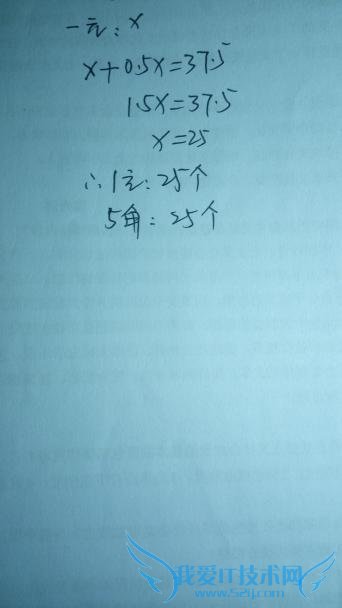 一元：x
x+0.5x=37.5
1.5x=37.5
x=25
∴1元：25个
5角：25个
我爱IT技术网
www.52ij.com